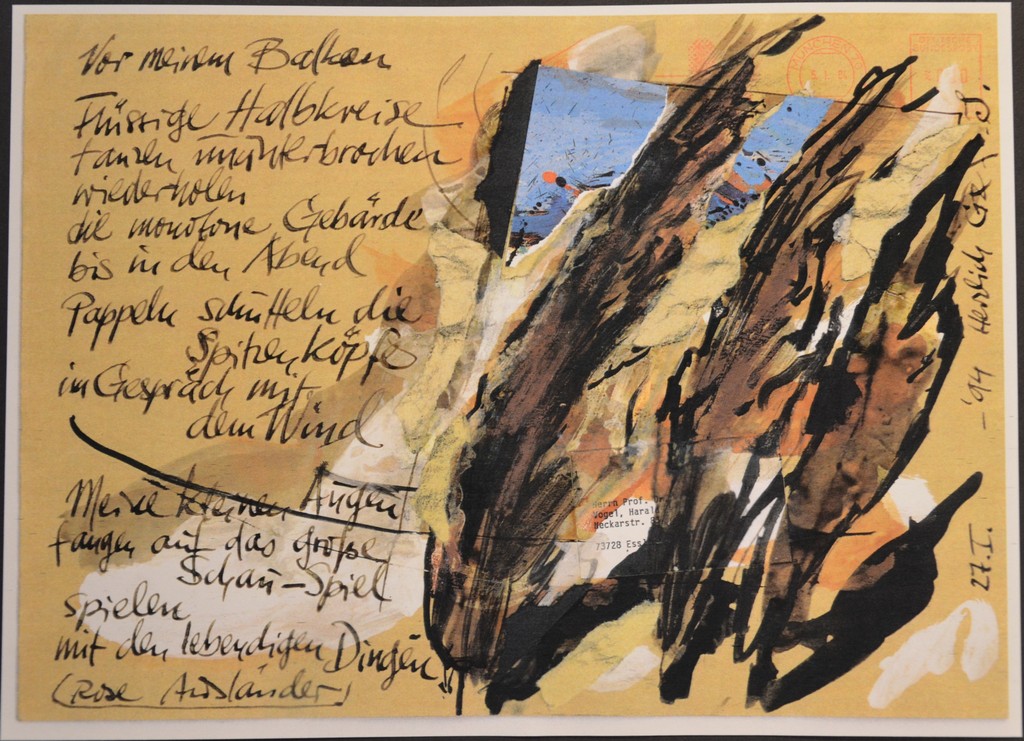 Vor meinem Balkon
Flüssige Halbkreise
tanzen ununterbrochen
wiederholen
die monotone Gebärde
bis in den Abend
Pappeln schütteln die
Spitzen Köpfe
im Gespräch mit
dem Wind
Meine kleinen Augen
fangen auf das große
Schau-Spiel
spielen
mit den lebendigen Dingen
(Rose Ausländer)
Herrn Prof.
Vogel, Haral
Neckarstr.
73728 Essl
27.I. - '94 Herzlich